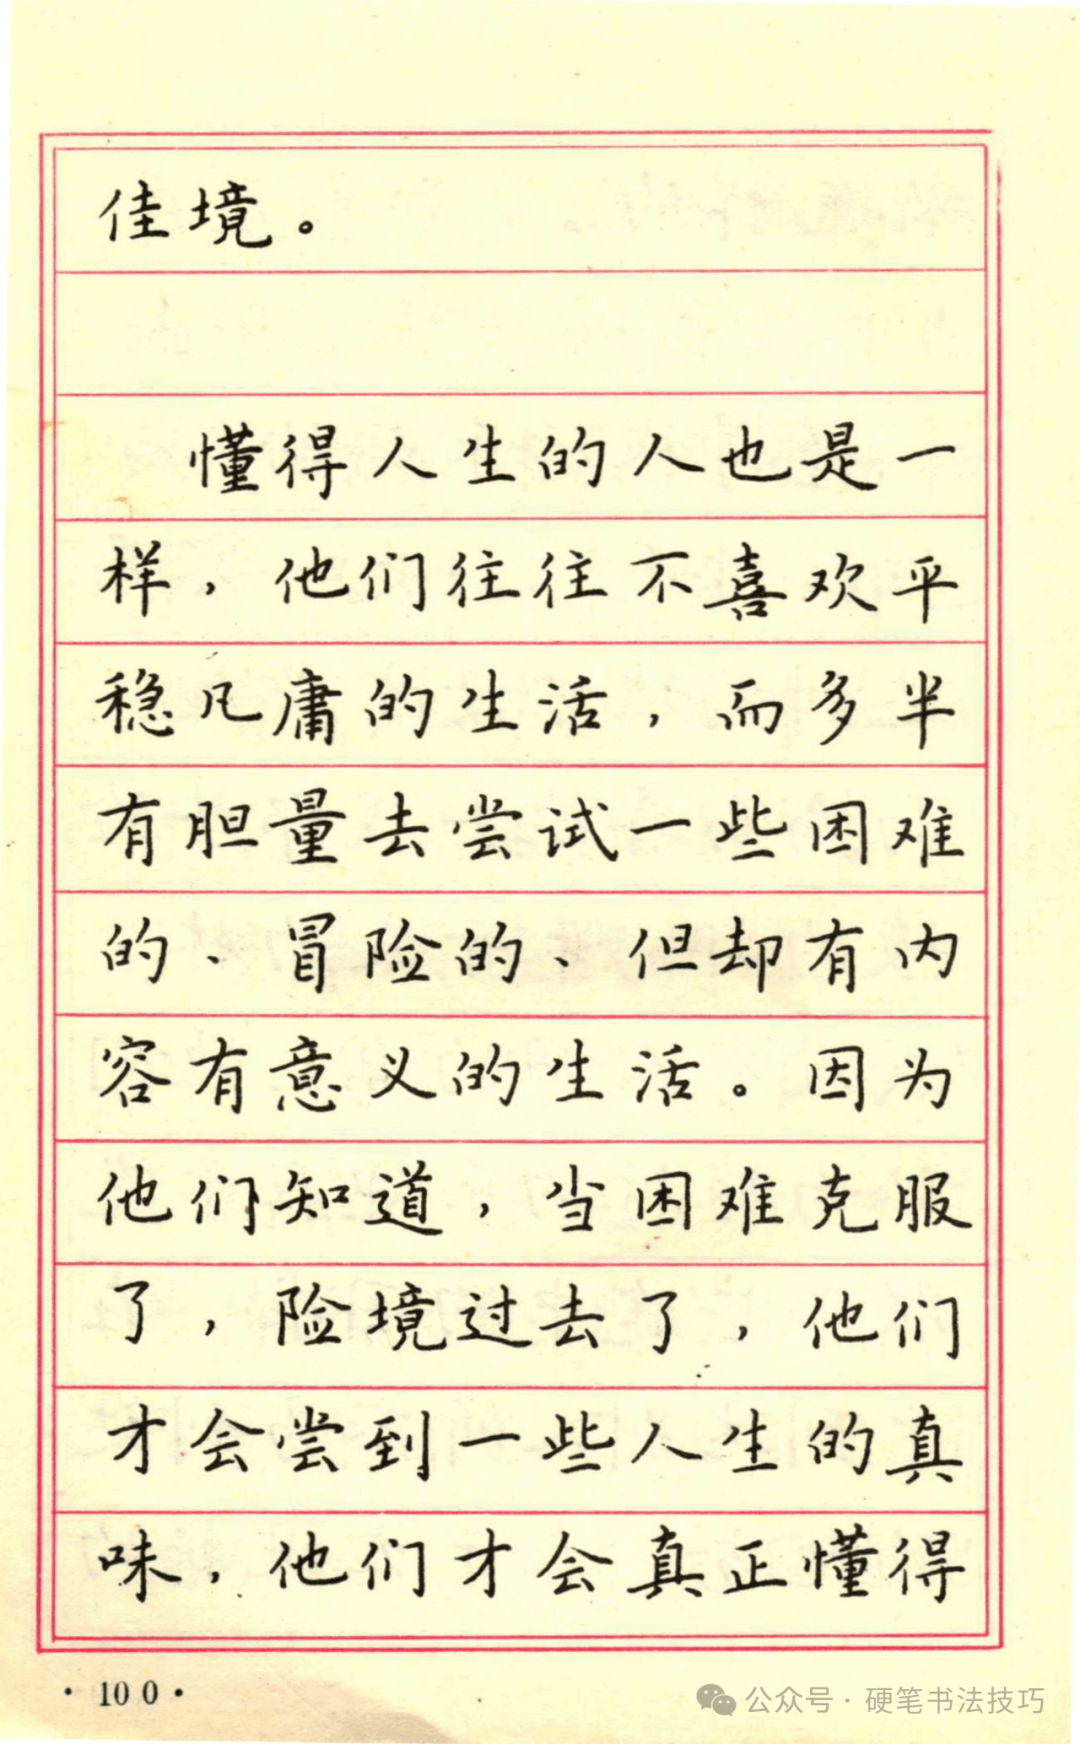 佳境。
懂得人生的人也是一
样，他们往往不喜欢平
稳凡庸的生活，而多半
有胆量去尝试一些困难
的、冒险的、但却有内
容有意义的生活。因为
他们知道，当困难克服
了，险境过去了，他们
才会尝到一些人生的真
味，他们才会真正懂得
·100·
公众号·硬笔书法技巧